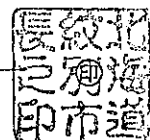 北海道
紋別市
長之印